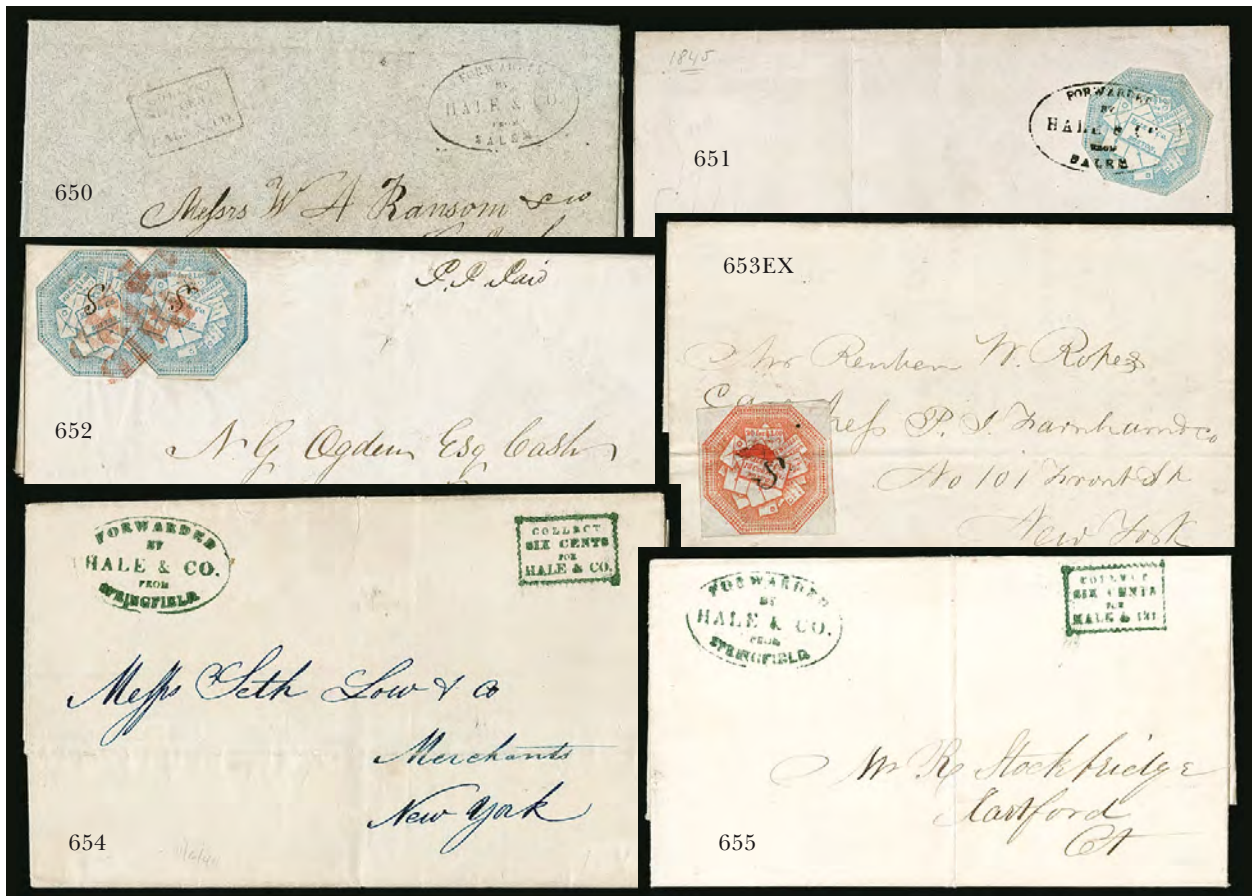 FORWARDED
BY
HALE & CO.
FROM
SALEM
HALE & CO.
650
Messrs W A Ransom & co
1845
FORWARDED
BY
HALE & CO.
FROM
SALEM
651
P.P. Paid
S
S
652
N. G. Ogden Esq Cash
653EX
Mr Reuben W. Ropes
Care Mess P. I. Farnham & co
S
No 101 Front St
New York
FORWARDED
BY
HALE & CO.
FROM
SPRINGFIELD
COLLECT
SIX CENTS
FOR
HALE & CO.
Messrs Seth Low & Co
Merchants
New York
654
FORWARDED
BY
HALE & CO.
FROM
SPRINGFIELD
COLLECT
SIX CENTS
FOR
HALE & CO.
Mr R Stockbridge
Hartford
Ct
655